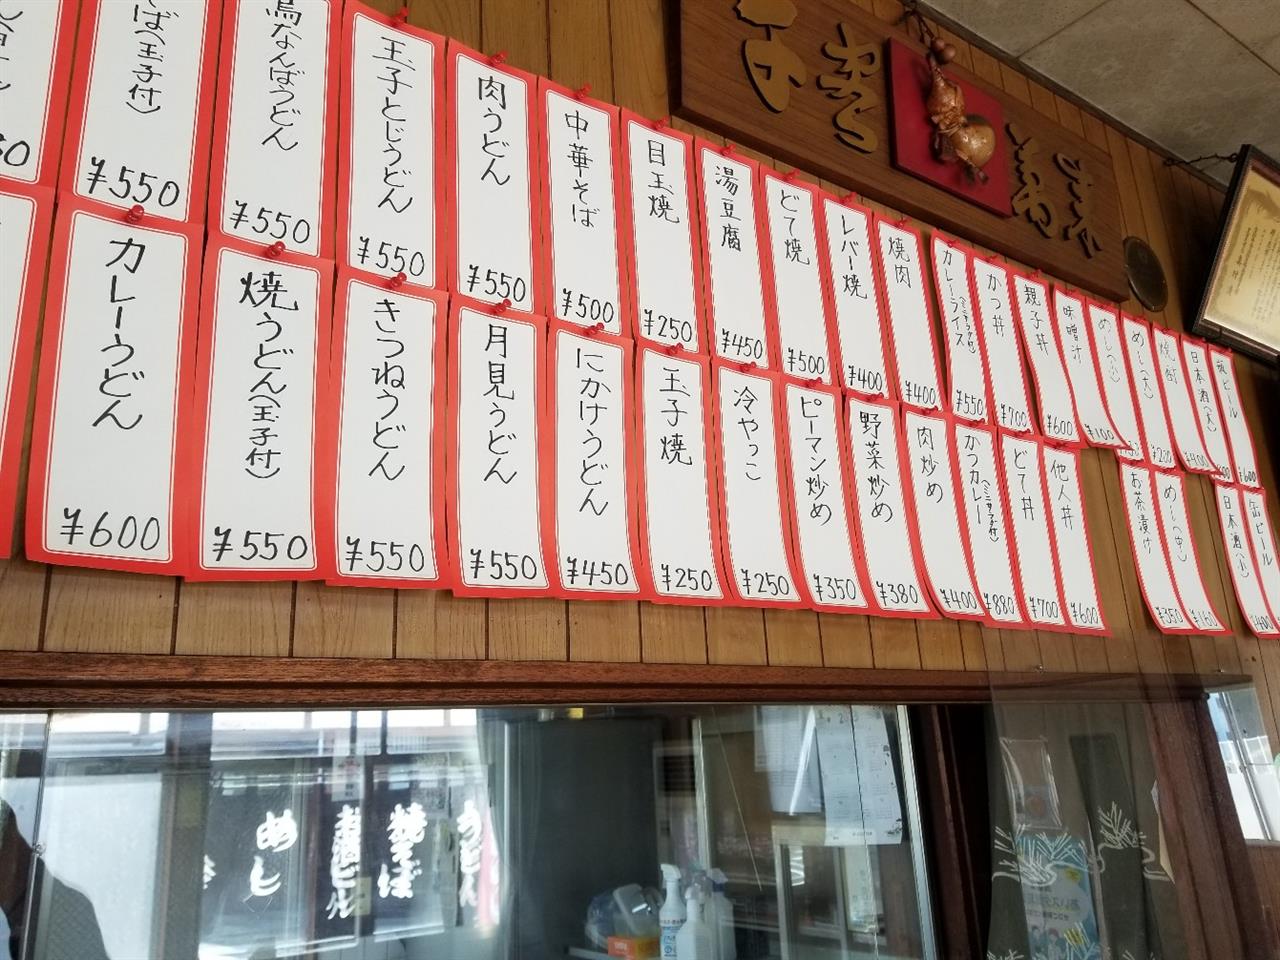 そば(玉子付)
¥550
鳥なんばうどん
¥550
玉子とじうどん
¥550
肉うどん
¥550
中華そば
¥500
目玉焼
¥250
湯豆腐
¥450
どて焼
¥500
レバー焼
¥400
焼肉
¥400
カレーライス
(ミニサラダ付)
¥550
かつ丼
¥700
親子丼
¥600
味噌汁
¥100
めし(小)
めし(大)
焼酎
日本酒(大)
¥400
瓶ビール
¥600
カレーうどん
¥600
焼うどん(玉子付)
¥550
きつねうどん
¥550
月見うどん
¥550
にかけうどん
¥450
玉子焼
¥250
冷やっこ
¥250
ピーマン炒め
¥350
野菜炒め
¥380
肉炒め
¥400
かつカレー
(ミニサラダ付)
¥880
どて丼
¥700
他人丼
¥600
お茶漬け
¥350
めし(中)
¥160
日本酒(小)
缶ビール
¥400
めし
お酒ビール
焼そば
うどん